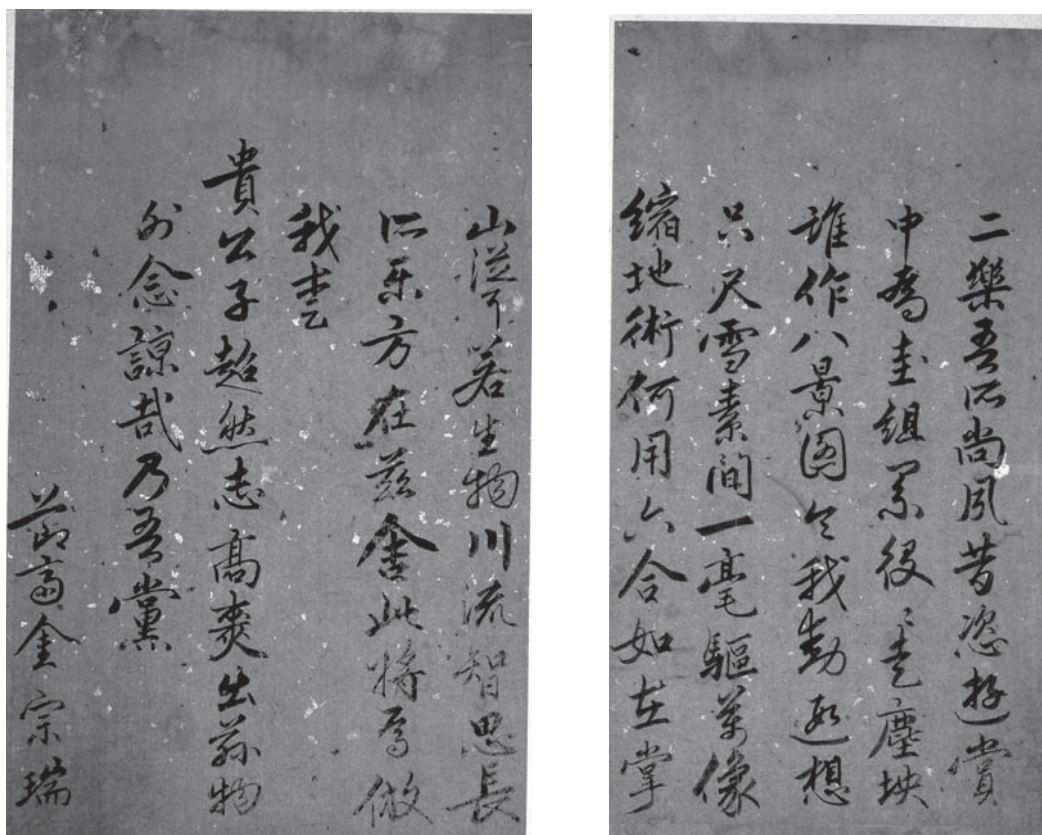 二樂吾所尚夙昔恣遊賞
中為圭組累役々走塵坱
誰作八景图令我動遐想
只尺雪素間一毫驅萬像
縮地術何用六合如在掌
山若生物川流智思長
所乐方在茲舍此將焉倣
我
貴公子超然志高爽出物
外念諒哉乃吾黨
節齋金宗瑞